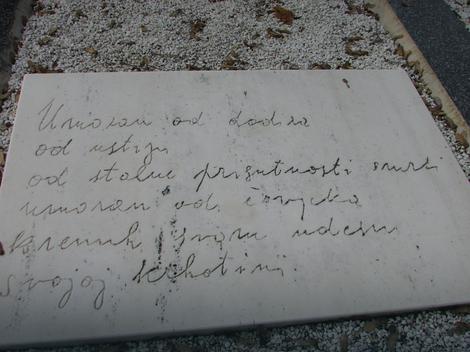 Umoran od dodira
od ustiju
od stalne prisutnosti smrti
umoran od čovjeka
krenuh svom udesu
svojoj krhotini